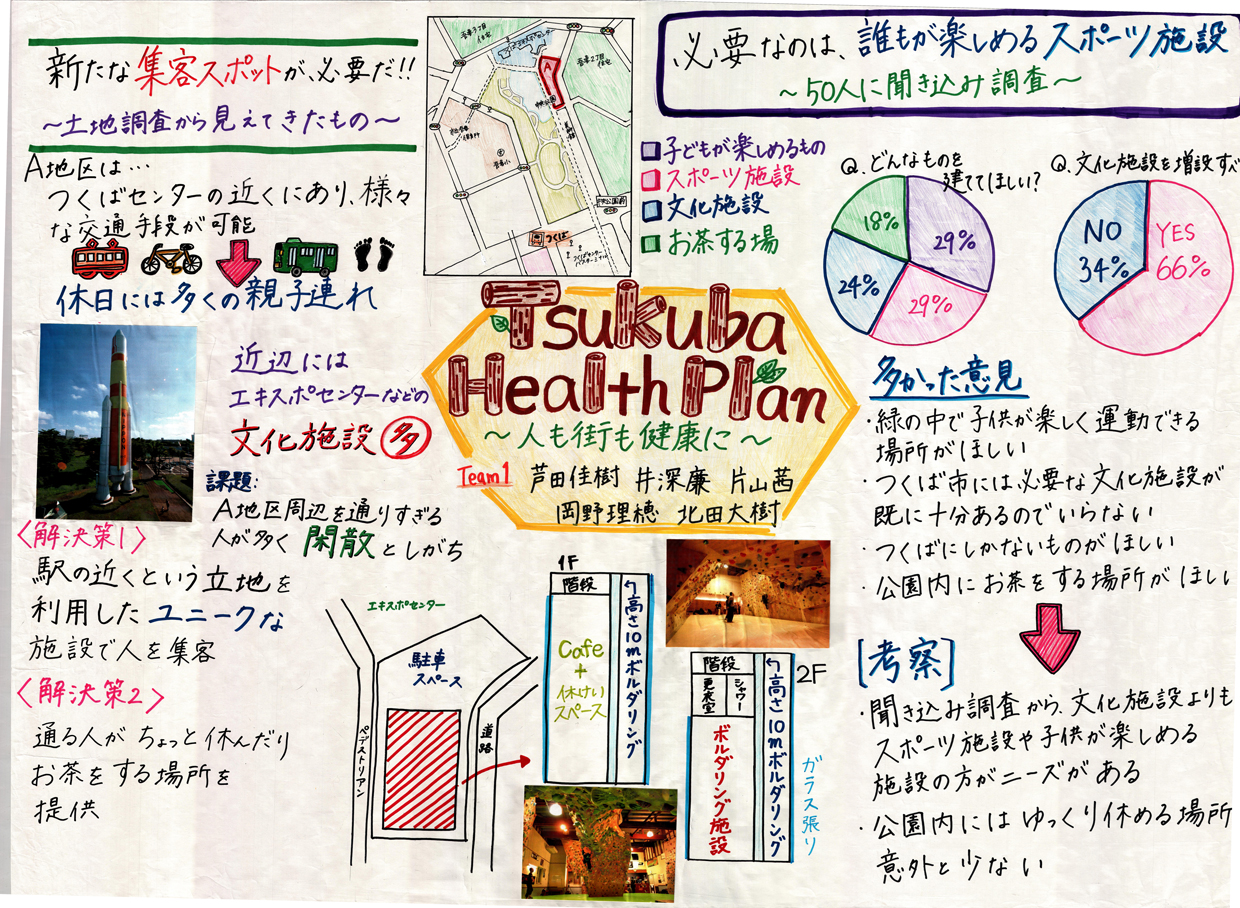 新たな集客スポットが、必要だ!!
～土地調査から見えてきたもの～
A地区は…
つくばセンターの近くにあり、様々
な交通手段が可能
休日には多くの親子連れ
近辺には
エキスポセンターなどの
文化施設 多
課題:
A地区周辺を通りすぎる
人が多く 閑散としがち
〈解決策1〉
駅の近くという立地を
利用したユニークな
施設で人を集客
〈解決策2〉
通る人がちょっと休んだり
お茶をする場所を
提供
A
中央公園
つくば
Tsukuba
Health Plan
～人も街も健康に～
Team1 芦田佳樹 井深廉 片山茜
岡野理穂 北田大樹
エキスポセンター
駐車
スペース
ペデストリアン
道路
1F
階段
Cafe
+
休けい
スペース
↰高さ10mボルダリング
2F
階段
更衣室
シャワー
ボルダリング施設
↰高さ10mボルダリング
ガラス張り
必要なのは、誰もが楽しめるスポーツ施設
～50人に聞き込み調査～
子どもが楽しめるもの
スポーツ施設
文化施設
お茶する場
Q.どんなものを
建ててほしい?
18%
29%
24%
29%
Q.文化施設を増設すべ
NO
34%
YES
66%
多かった意見
・緑の中で子供が楽しく運動できる
場所がほしい
・つくば市には必要な文化施設が
既に十分あるのでいらない
・つくばにしかないものがほしい
・公園内にお茶をする場所がほしい
[考察]
・聞き込み調査から、文化施設よりも
スポーツ施設や子供が楽しめる
施設の方がニーズがある
・公園内にはゆっくり休める場所
意外と少ない